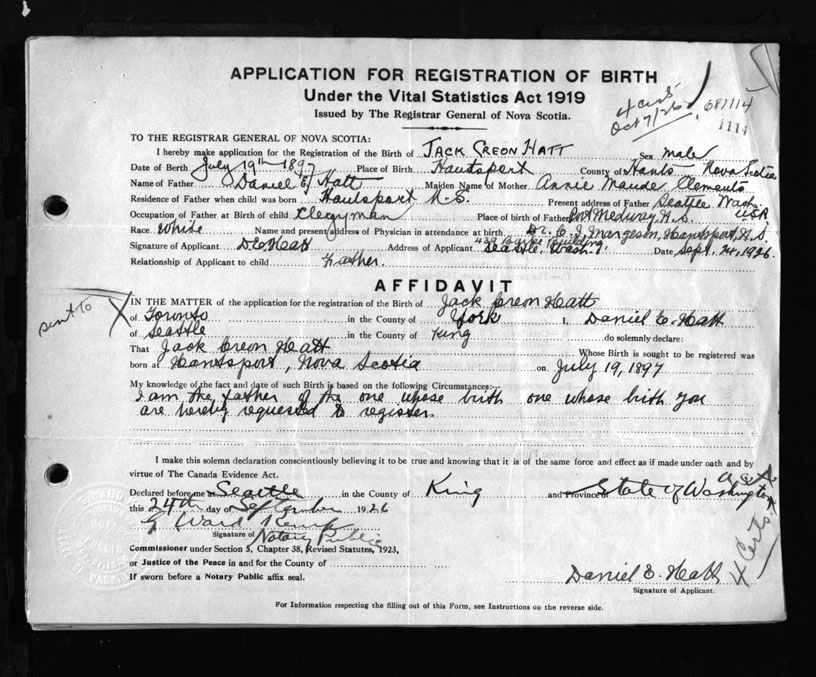 APPLICATION FOR REGISTRATION OF BIRTH
Under the Vital Statistics Act 1919
Issued by The Registrar General of Nova Scotia.
4 certs
Oct 7/26
081114
1111
TO THE REGISTRAR GENERAL OF NOVA SCOTIA:
I hereby make application for the Registration of the Birth of JACK CREON HATT Sex male
Date of Birth July 19th 1897 Place of Birth Hantsport County of Hants - Nova Scotia
Name of Father Daniel E. Hatt Maiden Name of Mother Annie Maude Clements
Residence of Father when child was born Hantsport N.S. Present address of Father Seattle Wash. USA
Occupation of Father at Birth of child Clergyman Place of birth of Father Port Medway N.S.
Race White Name and present address of Physician in attendance at birth Dr. E. I. Margeson, Hantsport, N.S.
Signature of Applicant D E Hatt Address of Applicant 439 Burke Building Seattle, Wash. Date Sept. 24, 1926.
Relationship of Applicant to child Father.
AFFIDAVIT
sent to
IN THE MATTER of the application for the registration of the Birth of Jack Creon Hatt
of Toronto in the County of York I, Daniel E. Hatt
of Seattle in the County of King do solemnly declare:
That Jack Creon Hatt Whose Birth is sought to be registered was
born at Hantsport, Nova Scotia on July 19, 1897
My knowledge of the fact and date of such Birth is based on the following Circumstances:
I am the father of the one whose birth one whose birth you
are hereby requested to register.
I make this solemn declaration conscientiously believing it to be true and knowing that it is of the same force and effect as if made under oath and by
virtue of The Canada Evidence Act.
Declared before me at Seattle in the County of King and Province of State of Washington
this 24th day of September 1926
Ward Kemp
Signature of Notary Public
Commissioner under Section 5, Chapter 38, Revised Statutes, 1923,
or Justice of the Peace in and for the County of
If sworn before a Notary Public affix seal.
Daniel E. Hatt
Signature of Applicant.
4 Certs
For Information respecting the filling out of this Form, see Instructions on the reverse side.